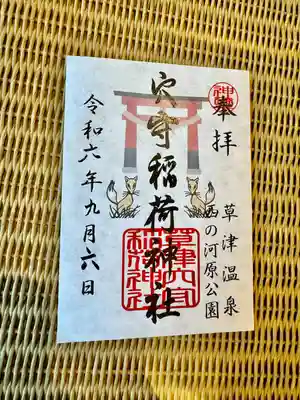 奉拝
草津温泉
西の河原公園
穴守稲荷神社
草津穴守
稲荷神社
令和六年九月六日